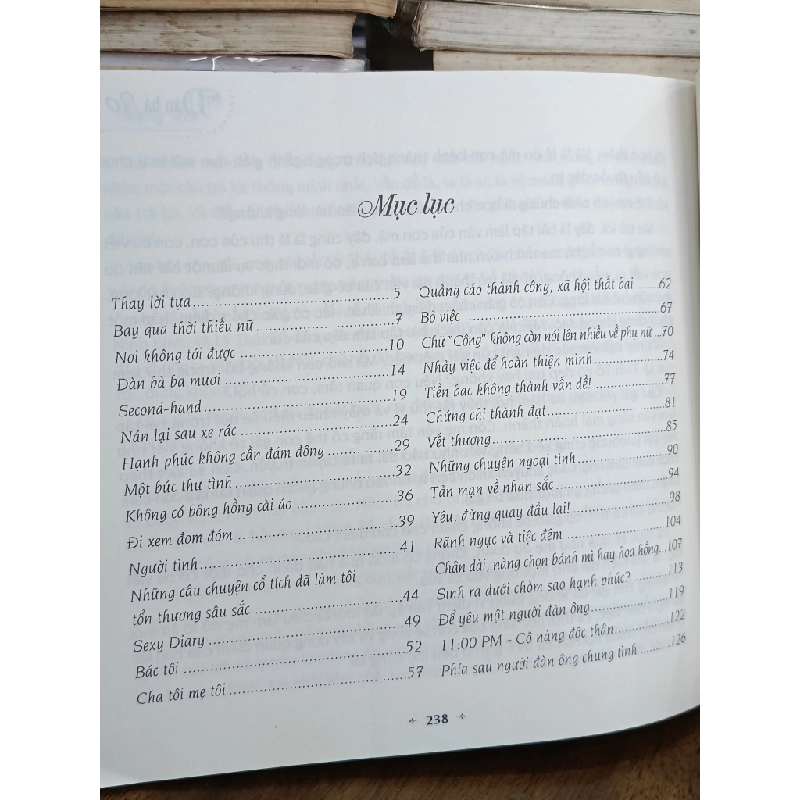 Mục lục
Thay lời tựa ... 5
Bay qua thời thiếu nữ ... 7
Nơi không tới được ... 10
Đàn bà ba mươi ... 14
Second-hand ... 19
Nán lại sau xe rác ... 24
Hạnh phúc không cần đám đông ... 29
Một bức thư tình ... 32
Không có bông hồng cài áo ... 36
Đi xem đom đóm ... 39
Người tình ... 41
Những câu chuyện cổ tích đã làm tôi
tổn thương sâu sắc ... 44
Sexy Diary ... 49
Bác tôi ... 52
Cha tôi mẹ tôi ... 57
Quảng cáo thành công, xã hội thất bại ... 62
Bỏ việc ... 67
Chữ "Công" không còn nói lên nhiều về phụ nữ ... 70
Nhảy việc để hoàn thiện mình ... 74
Tiền bạc không thành vấn đề! ... 77
Chứng chỉ thành đạt ... 81
Vết thương ... 85
Những chuyện ngoại tình ... 90
Tản mạn về nhan sắc ... 94
Yêu, đừng quay đầu lại! ... 98
Rãnh ngực và tiệc đêm ... 104
Chân dài, nàng chọn bánh mì hay hoa hồng ... 107
Sinh ra dưới chòm sao hạnh phúc? ... 113
Để yêu một người đàn ông ... 119
11.00 PM - Cô nàng độc thân ... 122
Phía sau người đàn ông chung tình ... 126
238